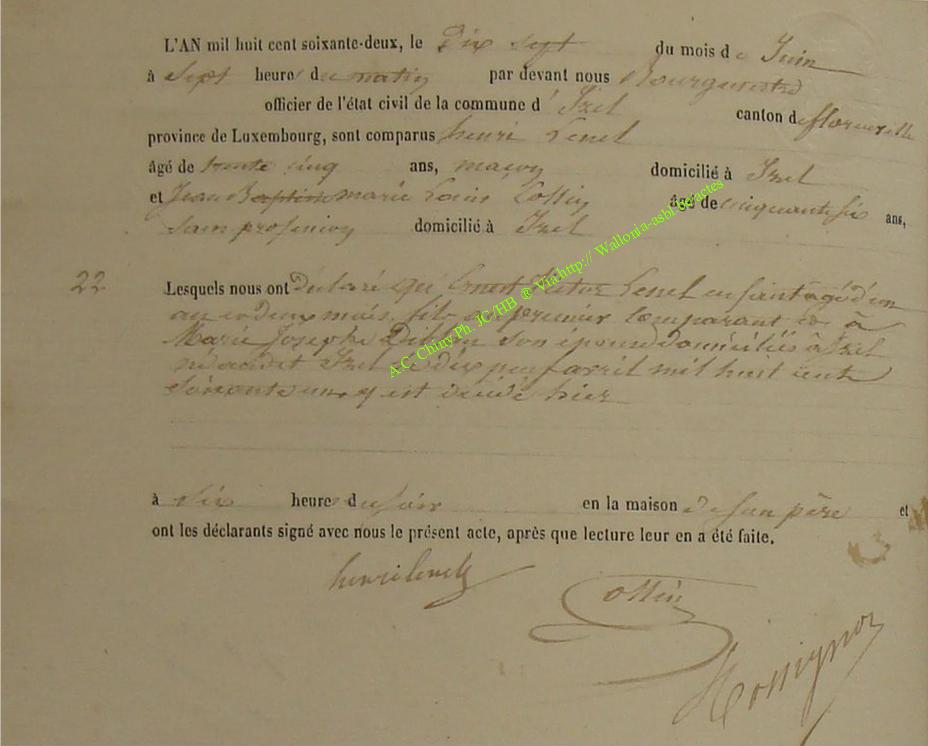 L'AN mil huit cent soixante-deux, le Dix sept du mois de Juin
à Sept heures du matin par devant nous Bourgmestre
officier de l'état civil de la commune d' Izel canton de florenville
province de Luxembourg, sont comparus henri Lenel
âgé de trente cinq ans, maçon domicilié à Izel
et Jean Baptiste marie Louis Collin âgé de cinquante six ans,
Sans profession domicilié à Izel
22 Lesquels nous ont Déclaré que Ernest Lenel enfant agé d'un
an et deux mois, fils du premier Comparant et à
Marie Josephe son épouse domiciliés à Izel
né audit Izel le dix neuf avril mil huit cent
Soixante un, y est décédé hier
à Six heures du soir en la maison de son père et
ont les déclarants signé avec nous le présent acte, après que lecture leur en a été faite.
henri lenel
Collin
A.C. Chiny Ph. JC/HB @ Via http:// Wallonia-asbl-be/actes